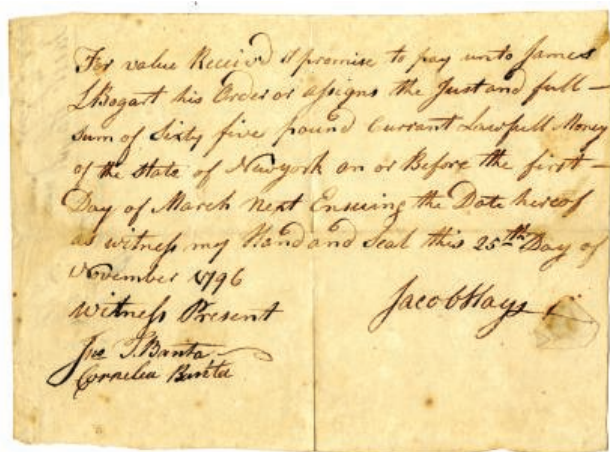 For value Receivd I promise to pay unto James
L Bogart his Order or assigns the Just and full -
sum of Sixty five pound Currant Lawfull Money
of the State of Newyork on or Before the first -
Day of March next Ensuing the Date hereof
as witness my Hand and Seal this 25th Day of
November 1796
Witness Present
Jacob Hays
Jno J. Banta
Cornelea Banta